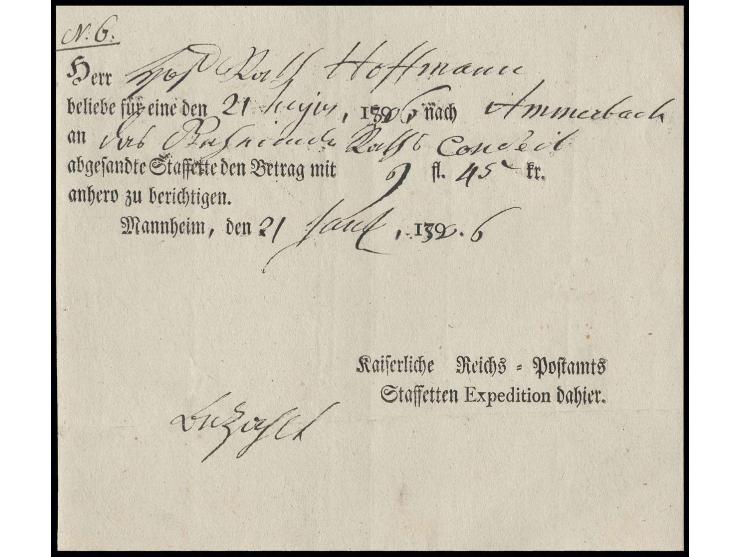 N. 6.
Herr Hof Rath Hoffmann
beliebe für eine den 21 hujus, 1806 nach Ammerbach
an das Geheimde Raths Conseil
abgesandte Staffette den Betrag mit 9 fl. 45 kr.
anhero zu berichtigen.
Mannheim, den 21 , 180.6
Kaiserliche Reichs = Postamts
Staffetten Expedition dahier.
bezahlt